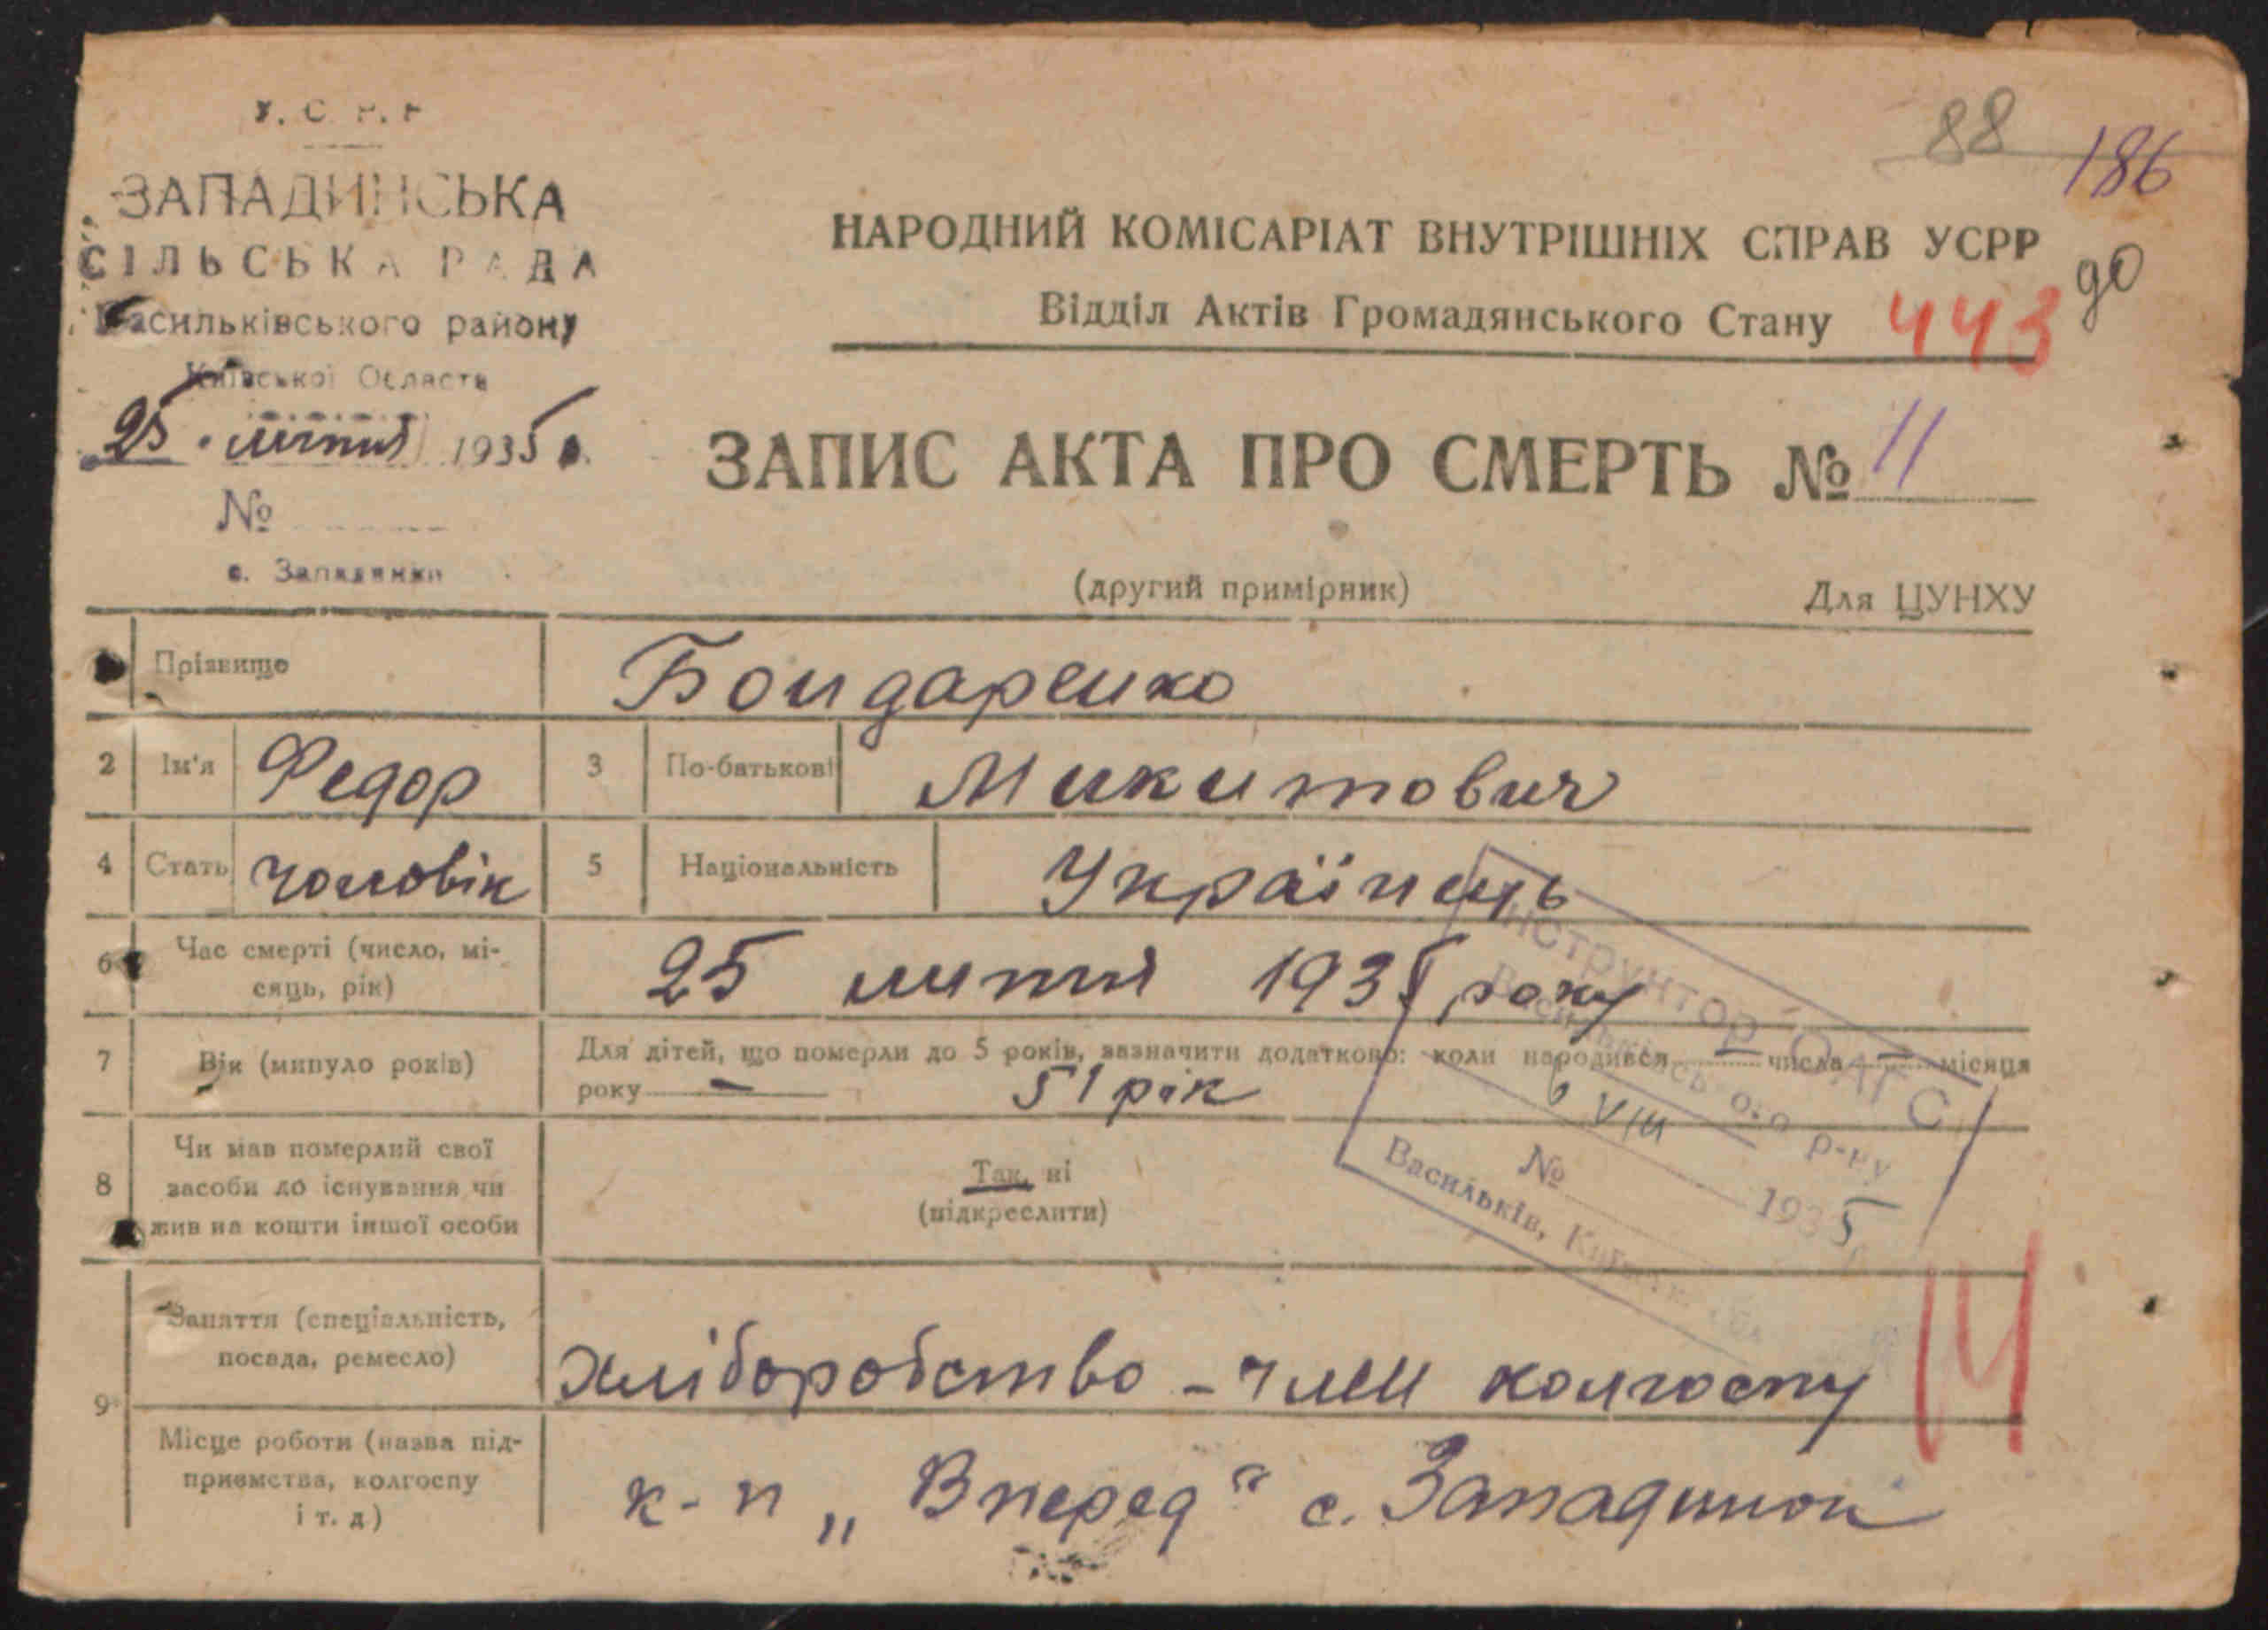 У. С. Р. Р
88
186
ЗАПАДИНСЬКА
СІЛЬСЬКА РАДА
Васильківського району
Київської Области
25 липня 1935 р.
№
с. Западинка
НАРОДНИЙ КОМІСАРІАТ ВНУТРІШНІХ СПРАВ УСРР
до
Відділ Актів Громадянського Стану 443
ЗАПИС АКТА ПРО СМЕРТЬ № 11
(другий примірник) Для ЦУНХУ
Прізвище Бондаренко
2 Ім'я Федор 3 По-батькові Микитович
4 Стать чоловік 5 Національність Українець
6 Час смерті (число, мі-
сяць, рік) 25 липня 1935 року
7 Вік (минуло років) Для дітей, що померли до 5 років, зазначити додатково: коли народився — числа — місяця
року — 51 рік
8 Чи мав померлий свої
засоби до існування чи
жив на кошти іншої особи
Так, ні
(підкреслити)
Інструктор ОАГС
Васильківського р-ну
6 VIII 1935
№
Васильків,
9 Заняття (спеціальність,
посада, ремесло) хліборобство - член колгоспу
14
Місце роботи (назва під-
приємства, колгоспу
і т. д) к-п „Вперед" с. Западинки